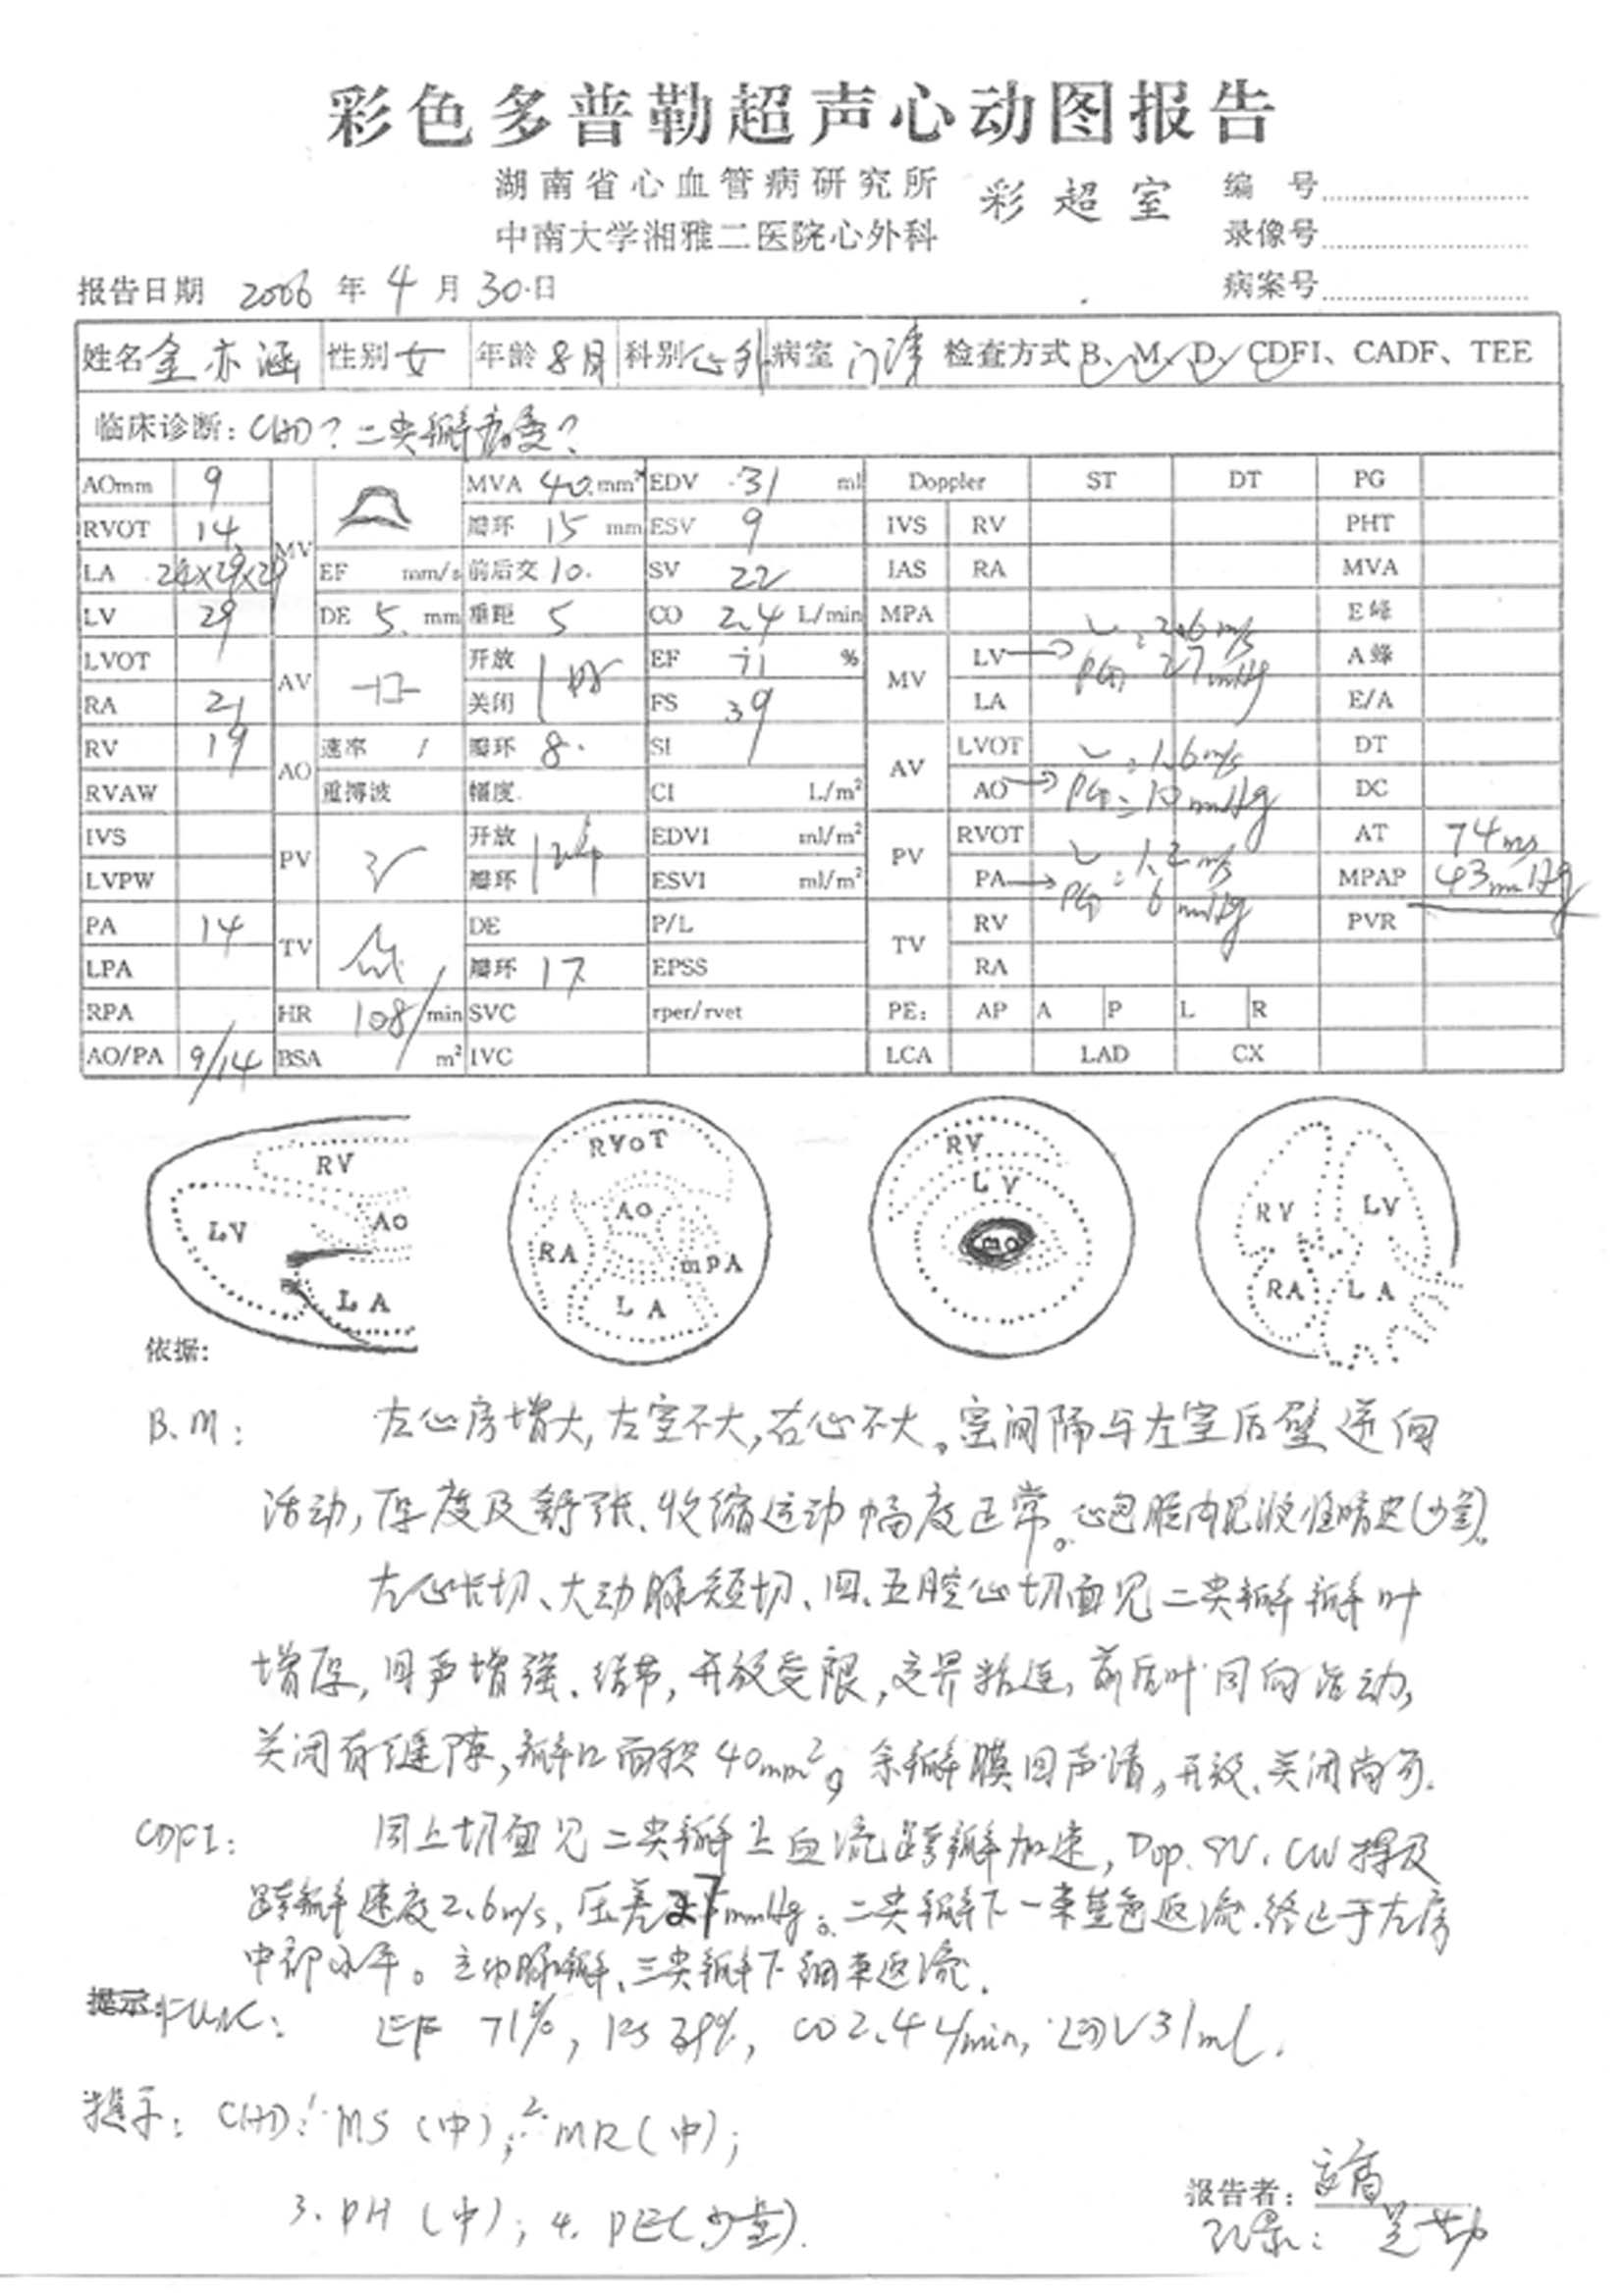 彩色多普勒超声心动图报告
湖南省心血管病研究所 彩超室 编 号
中南大学湘雅二医院心外科 录像号
报告日期 2006 年 4 月 30 日 病案号
姓名 金亦涵 性别 女 年龄 8月 科别 心外 病室 门诊 检查方式 B、M、D、CDFI、CADF、TEE
临床诊断: CHD? 二尖瓣病变?
AOmm 9 MV MVA 40 mm² EDV 31 ml Doppler ST DT PG
RVOT 14 瓣环 15 mm ESV 9 IVS RV PHT
LA 24×29×29 EF mm/s 前后交 10 SV 22 IAS RA MVA
LV 29 DE 5 mm 重距 5 CO 2.4 L/min MPA E峰
LVOT AV 开放 EF 71 % MV LV→ V=2.6m/s PG=27mmHg A峰
RA 21 关闭 FS 39 LA E/A
RV 19 AO 速率 / 瓣环 8 SI AV LVOT V=1.6m/s DT
RVAW 重搏波 幅度 CI L/m² AO→ PG=10mmHg DC
IVS PV 开放 EDVI ml/m² PV RVOT V=1.2m/s AT 74ms
LVPW 瓣环 ESVI ml/m² PA→ PG 6mmHg MPAP 43mmHg
PA 14 TV DE P/L TV RV PVR
LPA 瓣环 17 EPSS RA
RPA HR 108/min SVC rper/rvet PE: AP A P L R
AO/PA 9/14 BSA m² IVC LCA LAD CX
RV LV AO LA
RVOT AO RA mPA LA
RV LV mo
RV LV RA LA
依据:
B.M: 左心房增大,左室不大,右心不大。室间隔与左室后壁逆向
活动,厚度及舒张、收缩运动幅度正常。心包腔内见液性暗区(少量)。
左心长切、大动脉短切、四、五腔心切面见二尖瓣瓣叶
增厚,回声增强、结节,开放受限,交界粘连,前后叶同向活动,
关闭有缝隙,瓣口面积40mm²。余瓣膜回声清,开放、关闭尚可.
CDFI: 同上切面见二尖瓣上血流跨瓣加速,Dop.PW.CW探及
跨瓣速度2.6m/s,压差27mmHg。二尖瓣下一束蓝色返流.终止于左房
中部水平。主动脉瓣、三尖瓣下细束返流.
提示:
FUNC: EF 71%, FS 39%, CO 2.4L/min, EDV31ml.
提示: CHD: 1. MS(中); 2. MR(中);
3. PH(中); 4. PE(少量).
报告者:
记录: